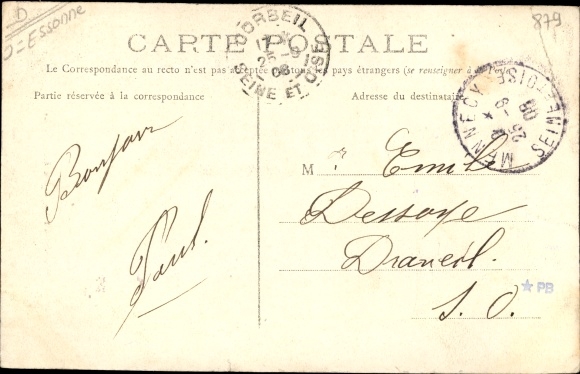 D
= Essonne
879
CARTE POSTALE
Le Correspondance au recto n'est pas acceptée par tous les pays étrangers (se renseigner à la Poste)
Partie réservée à la correspondance
Adresse du destinataire
CORBEIL
25 -9
08
SEINE ET OISE
MENNECY
25 -9
08
SEINE ET OISE
Bonjour
Paul.
M Emile
Dessoye
Draveil.
S. O.
PB